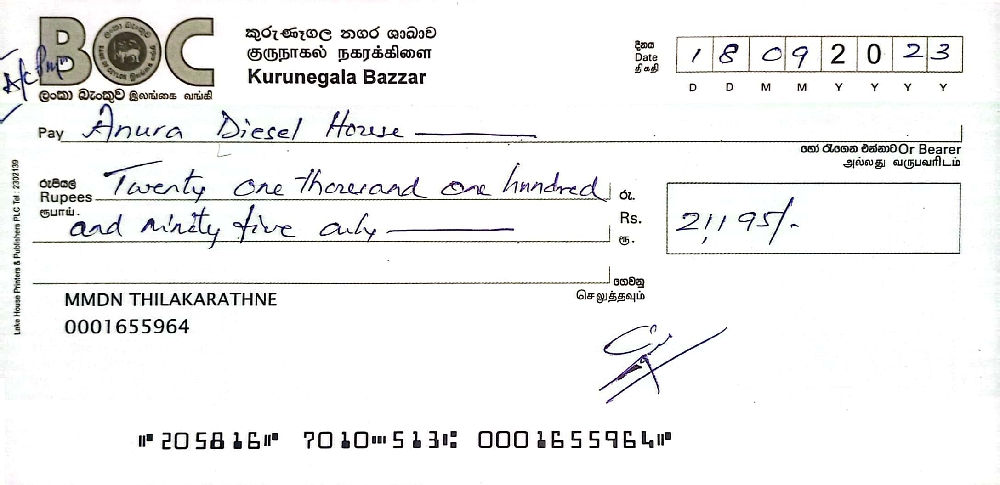 BOC
ලංකා බැංකුව இலங்கை வங்கி
කුරුණෑගල නගර ශාඛාව
குருநாகல் நகரக்கிளை
Kurunegala Bazzar
දිනය
Date
திகதி
1 8 0 9 2 0 2 3
D D M M Y Y Y Y
A/c
Pay Anura Diesel House
හෝ රැගෙන එන්නාට Or Bearer
அல்லது வருபவரிடம்
රුපියල්
Rupees
ரூபாய்.
Twenty one thousand one hundred
and ninety five only
රු.
Rs.
ரூ.
21,195/-
ගෙවනු
செலுத்தவும்
MMDN THILAKARATHNE
0001655964
Lake House Printers & Publishers PLC Tel : 2302139
⑈205816⑈ 7010⑉513⑆ 0001655964⑈